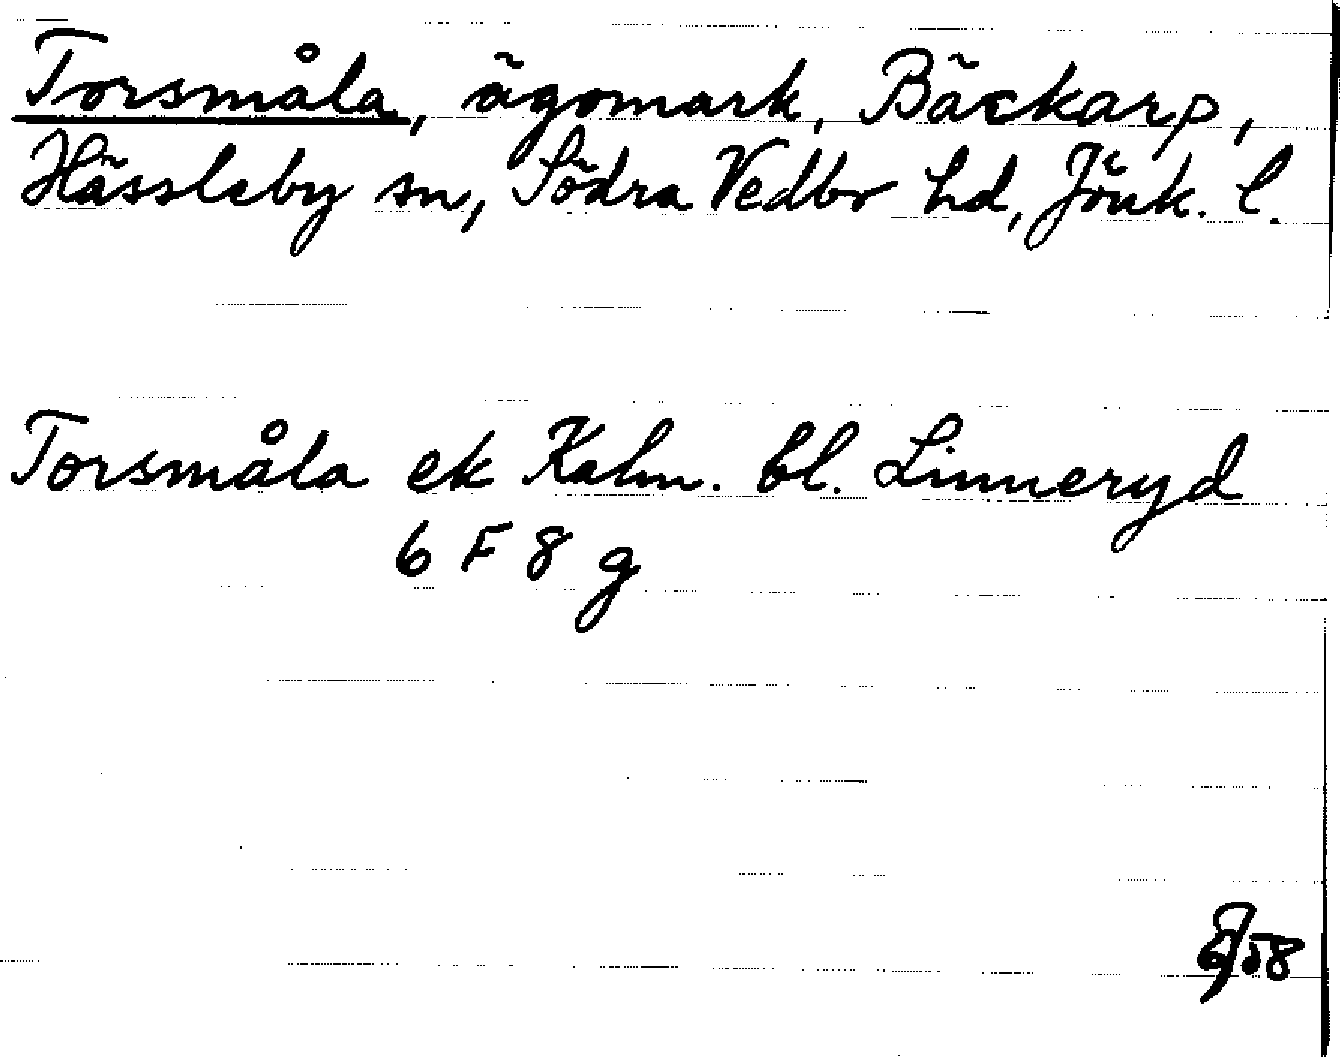 Torsmåla, ägomark, Bäckarp,
Hässleby sn, Södra Vedbo hd, Jönk. l.
Torsmåla ek Kalm. bl. Linneryd
6 F 8 g
58